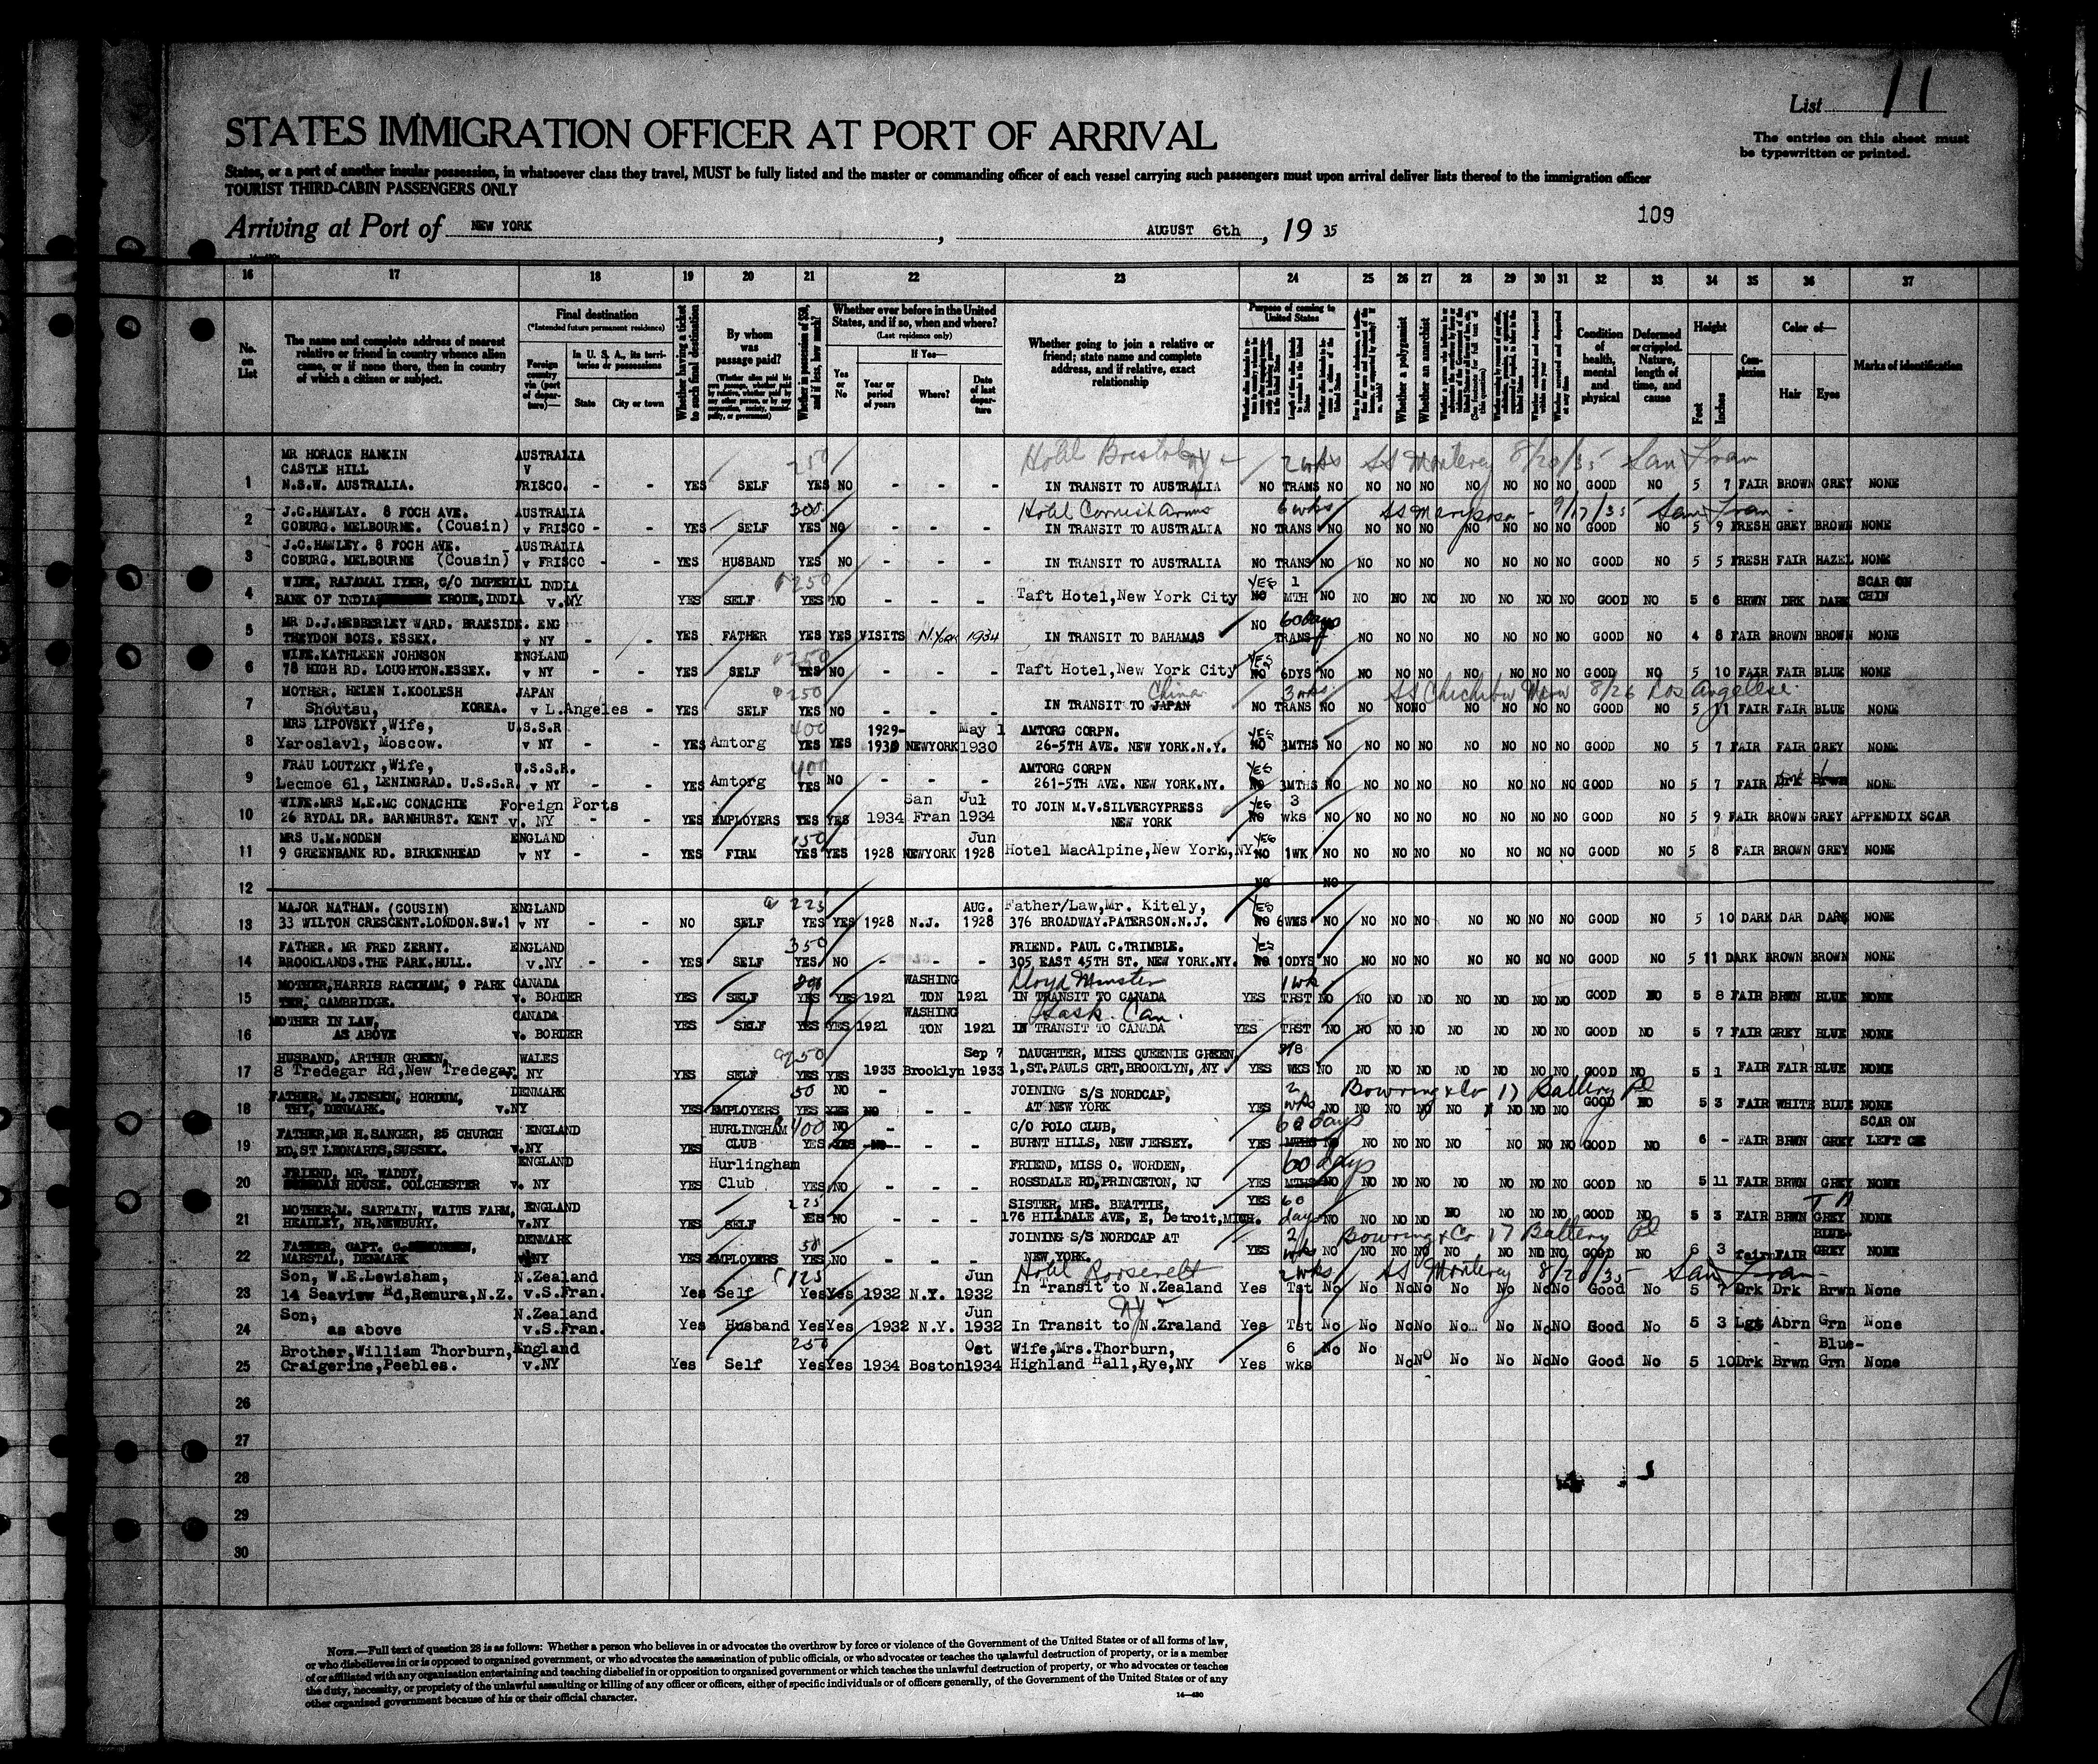 List 11
STATES IMMIGRATION OFFICER AT PORT OF ARRIVAL
The entries on this sheet must
be typewritten or printed.
States, or a port of another insular possession, in whatsoever class they travel, MUST be fully listed and the master or commanding officer of each vessel carrying such passengers must upon arrival deliver lists thereof to the immigration officer
TOURIST THIRD-CABIN PASSENGERS ONLY
109
Arriving at Port of NEW YORK, AUGUST 6th, 19 35
16 17 18 19 20 21 22 23 24 25 26 27 28 29 30 31 32 33 34 35 36 37
No. on List
The name and complete address of nearest
relative or friend in country whence alien
came, or if none there, then in country
of which a citizen or subject.
Final destination
(*Intended future permanent residence)
Foreign country via (port of departure)—
In U. S. A., its territories or possessions
State City or town
Whether having a ticket to such final destination
By whom was passage paid?
Whether in possession of $50, and if less, how much?
Whether ever before in the United
States, and if so, when and where?
(Last residence only)
Yes or No
If Yes—
Year or period of years
Where?
Date of last departure
Whether going to join a relative or
friend; state name and complete
address, and if relative, exact
relationship
Purpose of coming to United States
Whether a polygamist
Whether an anarchist
Condition of health, mental and physical
Deformed or crippled. Nature, length of time, and cause
Height
Feet Inches
Complexion
Color of—
Hair Eyes
Marks of identification
MR HORACE HANKIN AUSTRALIA 250 Hotel Bristol NY 2 wks SS Monterey 8/20/35 San Fran
CASTLE HILL V
1 N.S.W. AUSTRALIA. FRISCO. - - YES SELF YES NO - - - IN TRANSIT TO AUSTRALIA NO TRANS NO NO NO NO NO NO NO NO GOOD NO 5 7 FAIR BROWN GREY NONE
J.C.HAWLAY. 8 FOCH AVE. AUSTRALIA 300 Hotel Cornish Arms 6 wks SS Mariposa - 9/17/35 San Fran
2 COBURG. MELBOURNE. (Cousin) v FRISCO - - YES SELF YES NO - - - IN TRANSIT TO AUSTRALIA NO TRANS NO NO NO NO NO NO NO NO GOOD NO 5 9 FRESH GREY BROWN NONE
J.C.HAWLEY. 8 FOCH AVE. AUSTRALIA
3 COBURG. MELBOURNE (Cousin) v FRISCO - - YES HUSBAND YES NO - - - IN TRANSIT TO AUSTRALIA NO TRANS NO NO NO NO NO NO NO NO GOOD NO 5 5 FRESH FAIR HAZEL NONE
WIFE, RAJAMAL IYER, C/O IMPERIAL INDIA 250 YES 1 SCAR ON
4 BANK OF INDIA ERODE, INDIA v.NY YES SELF YES NO - - - Taft Hotel, New York City NO MTH NO NO NO NO NO NO NO NO GOOD NO 5 6 BRWN DRK DARK CHIN
MR D.J.HEBBERLEY WARD. BRAESIDE. ENG 60 days
5 THEYDON BOIS. ESSEX. v NY - - YES FATHER YES YES VISITS N.York 1934 IN TRANSIT TO BAHAMAS NO TRANS NO NO NO NO NO NO NO GOOD NO 4 8 FAIR BROWN BROWN NONE
WIFE.KATHLEEN JOHNSON ENGLAND 250 YES
6 78 HIGH RD. LOUGHTON.ESSEX. v NY - - YES SELF YES NO - - - Taft Hotel, New York City NO 6DYS NO NO NO NO NO NO NO NO GOOD NO 5 10 FAIR FAIR BLUE NONE
MOTHER. HELEN I.KOOLESH JAPAN 250 China 3 wks SS Chichibu Maru 8/26 Los Angeles
7 Shoutsu, KOREA. v L.Angeles - YES SELF YES NO - - - IN TRANSIT TO JAPAN NO TRANS NO NO NO NO NO NO NO NO GOOD NO 5 11 FAIR FAIR BLUE NONE
MRS LIPOVSKY, Wife, U.S.S.R 400 1929- May 1 AMTORG CORPN. YES
8 Yaroslavl, Moscow. v NY - - YES Amtorg YES YES 1930 NEWYORK 1930 26-5TH AVE. NEW YORK.N.Y. NO 3MTHS NO NO NO NO NO NO NO NO GOOD NO 5 7 FAIR FAIR GREY NONE
FRAU LOUTZKY, Wife, U.S.S.R. 400 AMTORG CORPN YES
9 Lecmoe 61, LENINGRAD. U.S.S.R. v NY YES Amtorg YES NO - - - 261-5TH AVE. NEW YORK.NY. NO 3MTHS NO NO NO NO NO NO NO NO GOOD NO 5 7 FAIR Drk Brwn NONE
WIFE.MRS M.E.MC CONACHIE Foreign Ports San Jul TO JOIN M.V.SILVERCYPRESS Yes 3
10 26 RYDAL DR. BARNHURST. KENT v. NY - - YES EMPLOYERS YES YES 1934 Fran 1934 NEW YORK NO wks NO NO NO NO NO NO NO NO GOOD NO 5 9 FAIR BROWN GREY APPENDIX SCAR
MRS U.M.NODEN ENGLAND 150 Jun YES
11 9 GREENBANK RD. BIRKENHEAD v NY - - YES FIRM YES YES 1928 NEWYORK 1928 Hotel MacAlpine, New York, NY NO 1WK NO NO NO NO NO NO NO NO GOOD NO 5 8 FAIR BROWN GREY NONE
12 NO NO
MAJOR NATHAN. (COUSIN) ENGLAND 225 AUG. Father/Law, Mr. Kitely, YES
13 33 WILTON CRESCENT.LONDON.SW.1 v NY - - NO SELF YES YES 1928 N.J. 1928 376 BROADWAY.PATERSON.N.J. NO 6WKS NO NO NO NO NO NO NO NO GOOD NO 5 10 DARK DAR DARK NONE
FATHER. MR FRED ZERNY. ENGLAND 350 FRIEND. PAUL C.TRIMBLE. YES
14 BROOKLANDS.THE PARK.HULL. v.NY YES SELF YES NO - - - 305 EAST 45TH ST. NEW YORK.NY. NO 10DYS NO NO NO NO NO NO NO NO GOOD NO 5 11 DARK BROWN BROWN NONE
MOTHER, HARRIS RACKHAM, 9 PARK CANADA WASHING Lloyd Minster 1 wk
15 TER, CAMBRIDGE. v. BORDER YES SELF YES YES 1921 TON 1921 IN TRANSIT TO CANADA YES TRST NO NO NO NO NO NO NO NO GOOD NO 5 8 FAIR BRWN BLUE NONE
MOTHER IN LAW, CANADA WASHING Sask. Can.
16 AS ABOVE v. BORDER YES SELF YES YES 1921 TON 1921 IN TRANSIT TO CANADA YES TRST NO NO NO NO NO NO NO NO GOOD NO 5 7 FAIR GREY BLUE NONE
HUSBAND, ARTHUR GREEN, WALES 250 Sep 7 DAUGHTER, MISS QUEENIE GREEN,
17 8 Tredegar Rd, New Tredegar. v. NY YES SELF YES YES 1933 Brooklyn 1933 1, ST.PAULS CRT, BROOKLYN, NY YES WKS NO NO NO NO NO NO NO NO GOOD NO 5 1 FAIR FAIR BLUE NONE
FATHER, M.JENSEN, HORDUM, DENMARK 50 NO - JOINING S/S NORDCAP, 2 Bowring & Co 17 Battery Pl
18 THY, DENMARK. v.NY YES EMPLOYERS YES YES NO - - - AT NEW YORK YES wks NO NO NO NO NO NO NO GOOD NO 5 3 FAIR WHITE BLUE NONE
FATHER, MR H.SANGER, 25 CHURCH ENGLAND HURLINGHAM 400 NO - C/O POLO CLUB, 60 days SCAR ON
19 RD, ST LEONARDS, SUSSEX. v.NY YES CLUB YES YES NO - - BURNT HILLS, NEW JERSEY. YES MTHS NO NO NO NO NO NO NO NO GOOD NO 6 - FAIR BRWN GREY LEFT
FRIEND, MR. WADDY, ENGLAND Hurlingham FRIEND, MISS O. WORDEN, 60 days
20 HOUSE. COLCHESTER v. NY YES Club YES NO - - - ROSSDALE RD, PRINCETON, NJ YES MTHS NO NO NO NO NO NO NO NO GOOD NO 5 11 FAIR BRWN GREY NONE
MOTHER, M. SARTAIN, WAITS FARM, ENGLAND 225 SISTER, MRS. BEATTIE, YES 60
21 HEADLEY, NR, NEWBURY. v.NY YES SELF YES NO - - - 176 HILLDALE AVE, E, Detroit, MICH. days NO NO NO NO NO NO NO NO GOOD NO 5 3 FAIR BRWN GREY NONE
FATHER, CAPT. DENMARK 50 JOINING S/S NORDCAP AT 2 Bowring & Co 17 Battery Pl BLUE-
22 MARSTAL, DENMARK NY YES EMPLOYERS YES NO - - - NEW YORK. YES wks NO NO NO NO NO NO NO NO GOOD NO 6 3 fair FAIR GREY NONE
Son, W.E.Lewisham, N.Zealand 125 Jun Hotel Roosevelt 2 wks SS Monterey 8/20/35 San Fran
23 14 Seaview Rd, Remura, N.Z. v.S.Fran. Yes Self Yes Yes 1932 N.Y. 1932 In Transit to N.Zealand Yes Tst No No No No No No No No Good No 5 7 Drk Drk Brwn None
Son, N.Zealand Jun NY
24 as above v.S.Fran. Yes Husband Yes Yes 1932 N.Y. 1932 In Transit to N.Zraland Yes Tst No No No No No No No No Good No 5 3 Lgt Abrn Grn None
Brother, William Thorburn, England 250 Oct Wife, Mrs. Thorburn, 6 No No Blue-
25 Craigerine, Peebles. v.NY Yes Self Yes Yes 1934 Boston 1934 Highland Hall, Rye, NY Yes wks No No No No No No Good No 5 10 Drk Brwn Grn None
26
27
28
29
30
NOTE.—Full text of question 28 is as follows: Whether a person who believes in or advocates the overthrow by force or violence of the Government of the United States or of all forms of law,
or who disbelieves in or is opposed to organized government, or who advocates the assassination of public officials, or who advocates or teaches the unlawful destruction of property, or is a member
of or affiliated with any organization entertaining and teaching disbelief in or opposition to organized government or which teaches the unlawful destruction of property, or who advocates or teaches
the duty, necessity, or propriety of the unlawful assaulting or killing of any officer or officers, either of specific individuals or of officers generally, of the Government of the United States or of any
other organized government because of his or their official character.
14—430